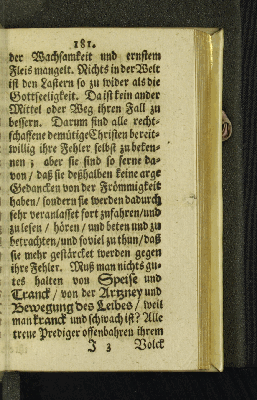 181.
der Wachsamkeit und ernstem
Fleis mangelt. Nichts in der Welt
ist den Lastern so zu wider als die
Gottseeligkeit. Da ist kein ander
Mittel oder Weg ihren Fall zu
bessern. Darum sind alle recht-
schaffene demütige Christen bereit-
willig ihre Fehler selbst zu beken-
nen; aber sie sind so ferne da-
von / daß sie deßhalben keine arge
Gedancken von der Frömmigkeit
haben / sondern sie werden dadurch
sehr veranlasset fort zufahren / und
zu lesen / hören / und beten und zu
betrachten / und so viel zu thun / daß
sie mehr gestärcket werden gegen
ihre Fehler. Muß man nichts gu-
tes halten von Speise und
Tranck / von der Artzney und
Bewegung des Leibes / weil
man kranck und schwach ist? Alle
treue Prediger offenbahren ihrem
J 3 Volck